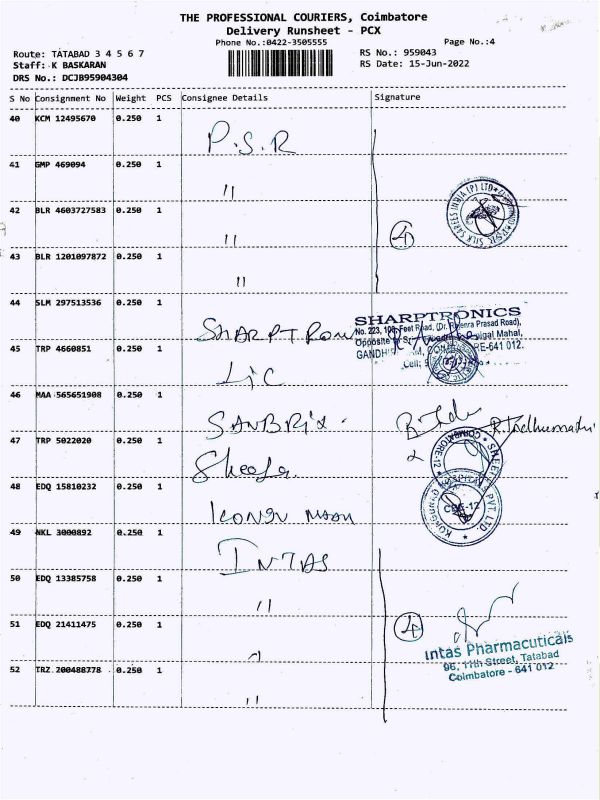 THE PROFESSIONAL COURIERS, Coimbatore
Delivery Runsheet - PCX
Phone No.:0422-3505555
Page No.:4
Route: TATABAD 3 4 5 6 7
RS No.: 959043
Staff: K BASKARAN
RS Date: 15-Jun-2022
DRS No.: DCJB95904304
S No Consignment No Weight PCS Consignee Details Signature
40 KCM 12495670 0.250 1 P.S.R
41 GMP 469094 0.250 1 "
42 BLR 4603727583 0.250 1 " 4
43 BLR 1201097872 0.250 1 "
44 SLM 297513536 0.250 1
SHARPTRONICS
No. 223, 100, Feet Road, (Dr. Rajenra Prasad Road),
45 TRP 4660851 0.250 1 LIC
COIMBATORE-641 012.
46 MAA 565651908 0.250 1 SANBRix.
47 TRP 5022020 0.250 1 Sheela
48 EDQ 15810232 0.250 1 KONGU
49 NKL 3000892 0.250 1 INTAS
50 EDQ 13385758 0.250 1 "
51 EDQ 21411475 0.250 1 " 4
Intas Pharmacuticals
96, 11th Street, Tatabad
Coimbatore - 641 012
52 TRZ 200488778 0.250 1 "